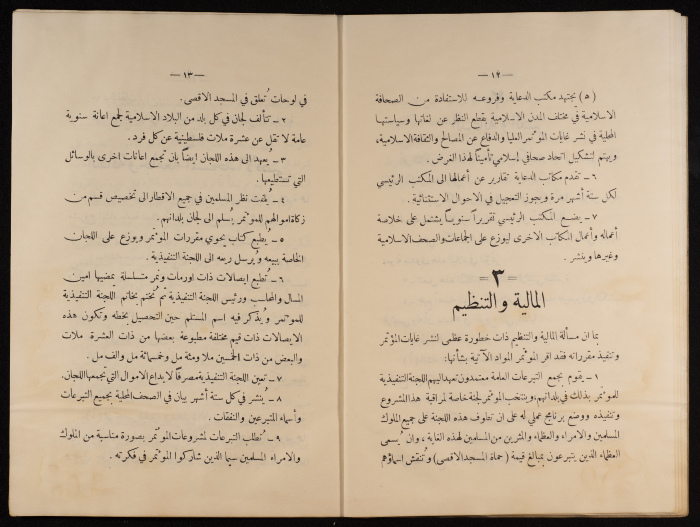 — ١٢ —
( ٥ ) يجتهد مكتب الدعاية وفروعه للاستفادة من الصحافة
الاسلامية في مختلف المدن الاسلامية بقطع النظر عن لغاتها وسياستها
المحلية في نشر غايات المؤتمر العليا والدفاع عن المصالح والثقافة الاسلامية،
ويهتم لتشكيل اتحاد صحافي إسلامي تأميناً لهذا الغرض .
٦ – تقدم مكاتب الدعاية تقارير عن أعمالها الى المكتب الرئيسي
لكل ستة أشهر مرة ويجوز التعجيل في الاحوال الاستثنائية .
٧ – يضع المكتب الرئيسي تقريراً سنوياً يشتمل على خلاصة
أعماله وأعمال المكاتب الاخرى ليوزع على الجماعات والصحف الاسلامية
وغيرها وينشر .
= ٣ =
المالية والتنظيم
بما ان مسألة المالية والتنظيم ذات خطورة عظمى لنشر غايات المؤتمر
وتنفيذ مقرراته فقد اقر المؤتمر المواد الآتية بشأنها:
١ – يقوم بجمع التبرعات العامة معتمدون تعهد اليهم اللجنة التنفيذية
للمؤتمر بذلك في بلدانهم: وينتخب المؤتمر لجنة خاصة لمراقبة هذا المشروع
وتنفيذه ووضع برنامج عملي له على ان تطوف هذه اللجنة على جميع الملوك
المسلمين والامراء والعظماء والمثرين من المسلمين لهذه الغاية ، وان يُسمى
العظماء الذين يتبرعون بمبالغ قيمة ( حماة المسجد الاقصى ) وتنقش اسماؤهم
— ١٣ —
في لوحات تُعلق في المسجد الاقصى .
٢ – تتألف لجان في كل بلد من البلاد الاسلامية لجمع اعانة سنوية
عامة لا تقل عن عشرة ملات فلسطينية عن كل فرد .
٣ – يُعهد الى هذه اللجان ايضاً بان تجمع اعانات اخرى بالوسائل
التي تستطيعها .
٤ – يُلفت نظر المسلمين في جميع الاقطار الى تخصيص قسم من
زكاة اموالهم للمؤتمر يُسلم الى لجان بلدانهم .
٥ – يُطبع كتاب يحوي مقررات المؤتمر ويوزع على اللجان
الخاصة ببيعه ويرسل ريعه الى اللجنة التنفيذية .
٦ – تُطبع ايصالات ذات اورمات ونمر متسلسلة يمضيها امين
المال والمحاسب ورئيس اللجنة التنفيذية ثم تُختم بخاتم اللجنة التنفيذية
للمؤتمر ويُذكر فيه اسم المستلم حين التحصيل بخطه وتكون هذه
الايصالات ذات قيم مختلفة مطبوعة بعضها من ذات العشرة ملات
والبعض من ذات الخمسين ملا ومئة مل وخمسمائة مل والف مل .
٧ – تعين اللجنة التنفيذية مصرفاً لايداع الاموال التي تجمعها اللجان.
٨ – يُنشر في كل ستة أشهر بيان في الصحف المحلية بجميع التبرعات
وأسماء المتبرعين والنفقات .
٩ – تُطلب التبرعات لمشروعات المؤتمر بصورة مناسبة من الملوك
والامراء المسلمين سيما الذين شاركوا المؤتمر في فكرته .